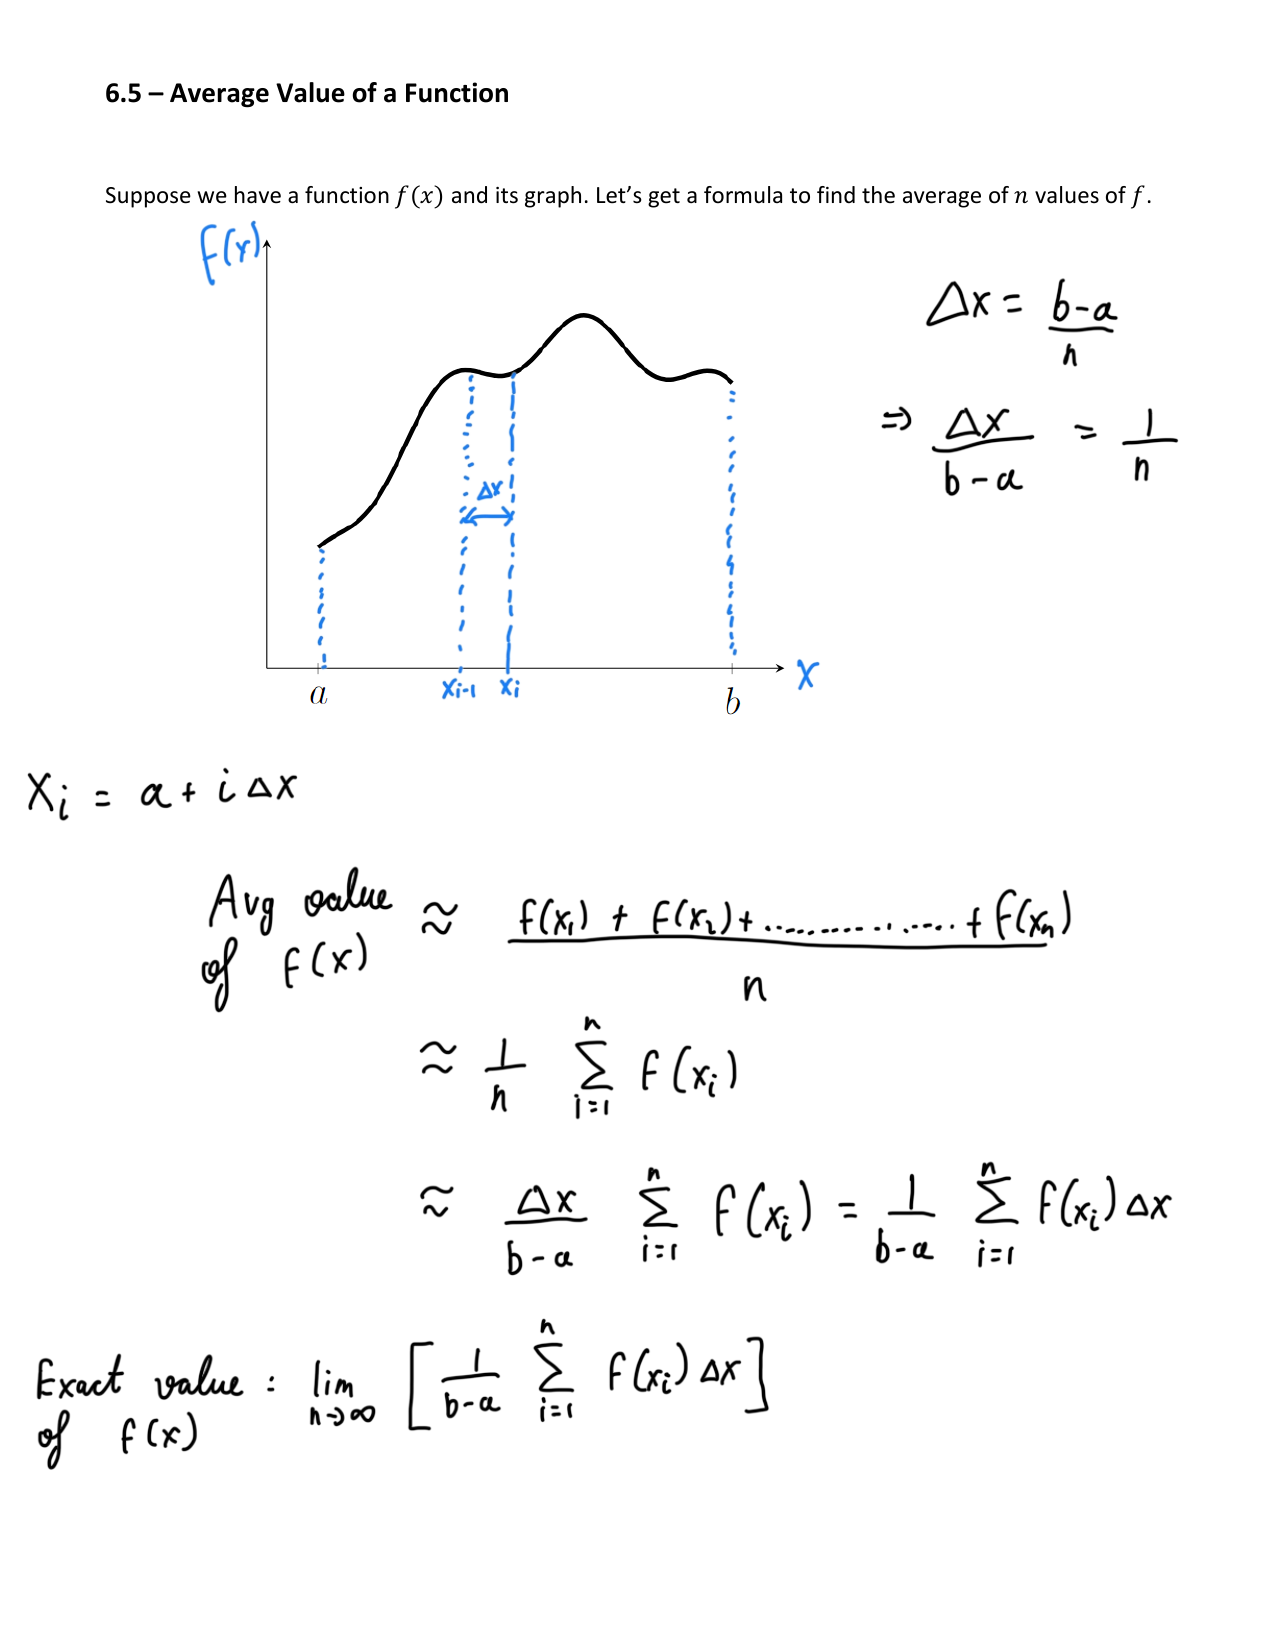 6.5 – Average Value of a Function
Suppose we have a function f(x) and its graph. Let's get a formula to find the average of n values of f.
f(x)
Δx = (b-a)/n
⇒ Δx/(b-a) = 1/n
Δx
x
a
xi-1
xi
b
xi = a + iΔx
Avg value of f(x) ≈ (f(x1) + f(x2) + .................. + f(xn))/n
≈ 1/n Σ_{i=1}^{n} f(xi)
≈ Δx/(b-a) Σ_{i=1}^{n} f(xi) = 1/(b-a) Σ_{i=1}^{n} f(xi) Δx
Exact value of f(x) : lim_{n→∞} [1/(b-a) Σ_{i=1}^{n} f(xi) Δx]